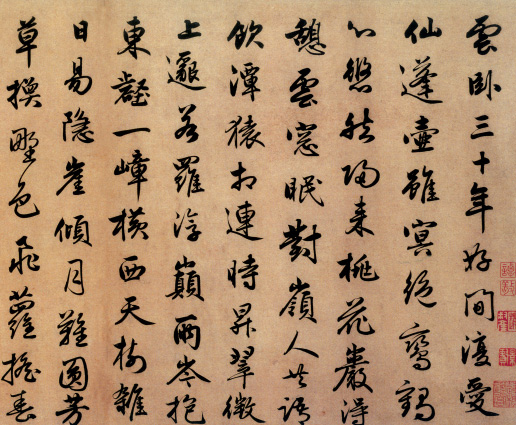 雲臥三十年好閒復愛
仙蓬壺雖冥絕鸞鶴
心悠然歸來桃花巖得
憩雲窓眠對嶺人共語
飲潭猿相連時昇翠微
上邈若羅浮巔兩岑抱
東壑一嶂橫西天樹雜
日易隱崖傾月難圓芳
草換野色飛蘿搖春